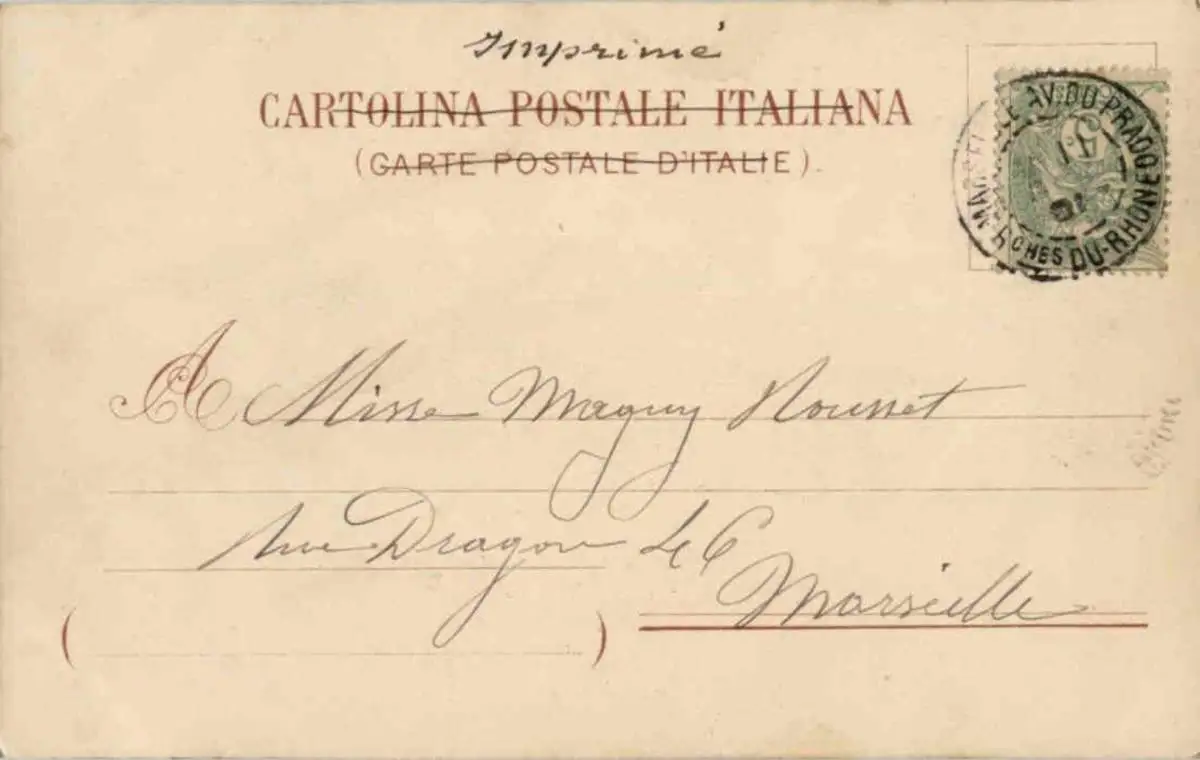 Imprimé
CARTOLINA POSTALE ITALIANA
(CARTE POSTALE D'ITALIE)
AV. DU PRADO
DU-RHONE
A Misse Maguy Rousset
Rue Dragon 46
Marseille